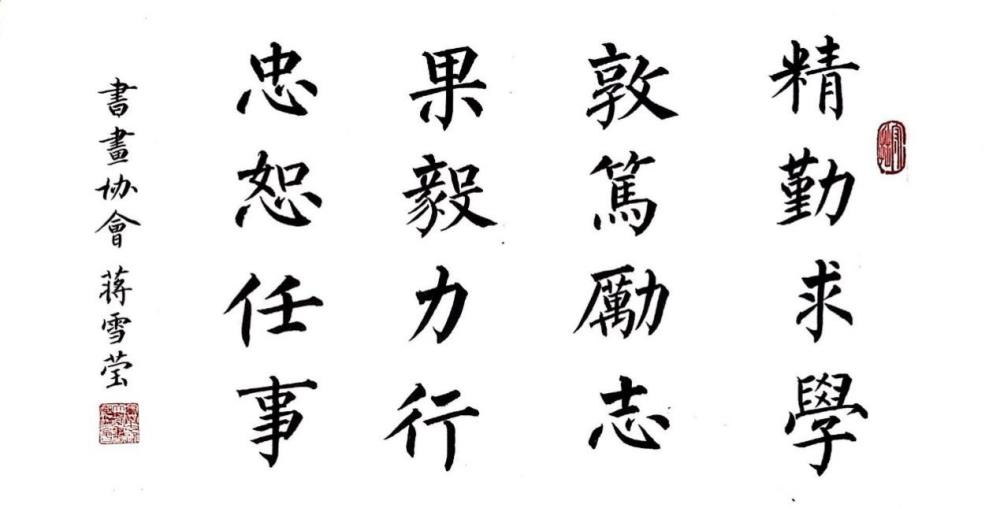 精勤求學
敦篤勵志
果毅力行
忠恕任事
書畫协會 蒋雪莹